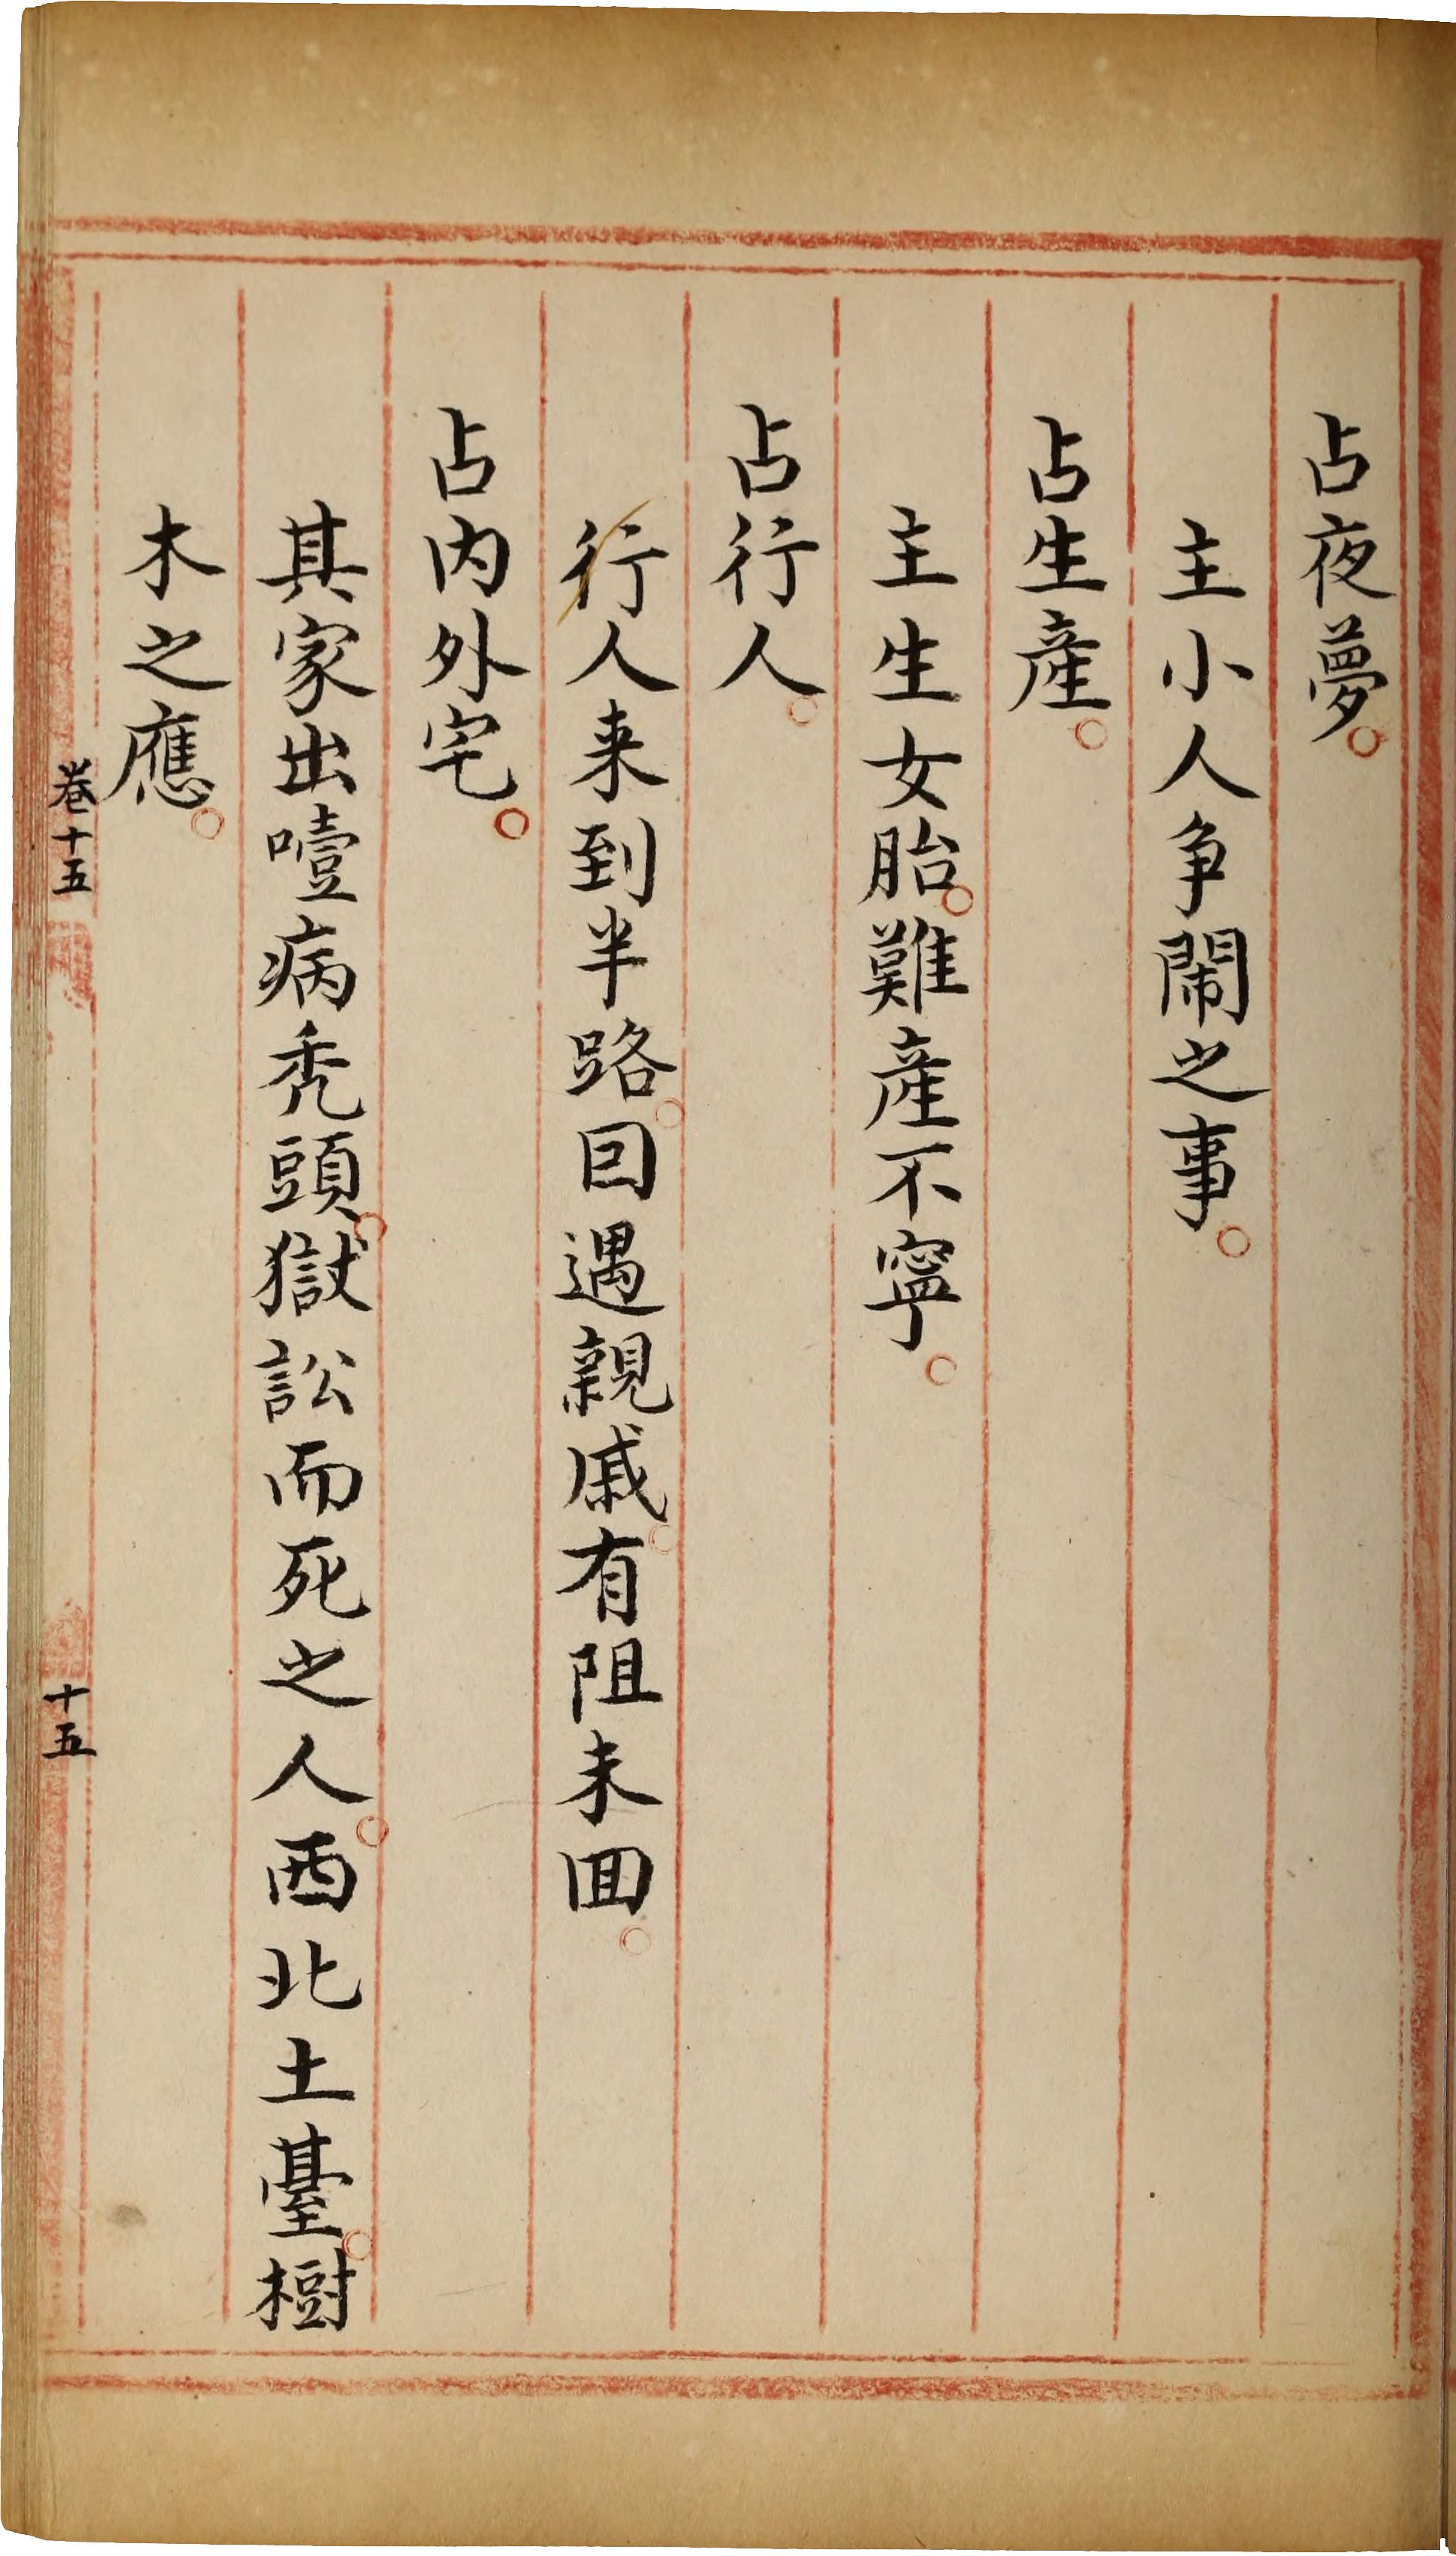 占夜夢。
主小人争鬧之事。
占生產。
主生女胎。難產不寧。
占行人。
行人来到半路。囙遇親戚。有阻未囬。
占内外宅。
其家出噎病秃頭。獄訟而死之人。西北土臺。樹
木之應。
卷十五
十五